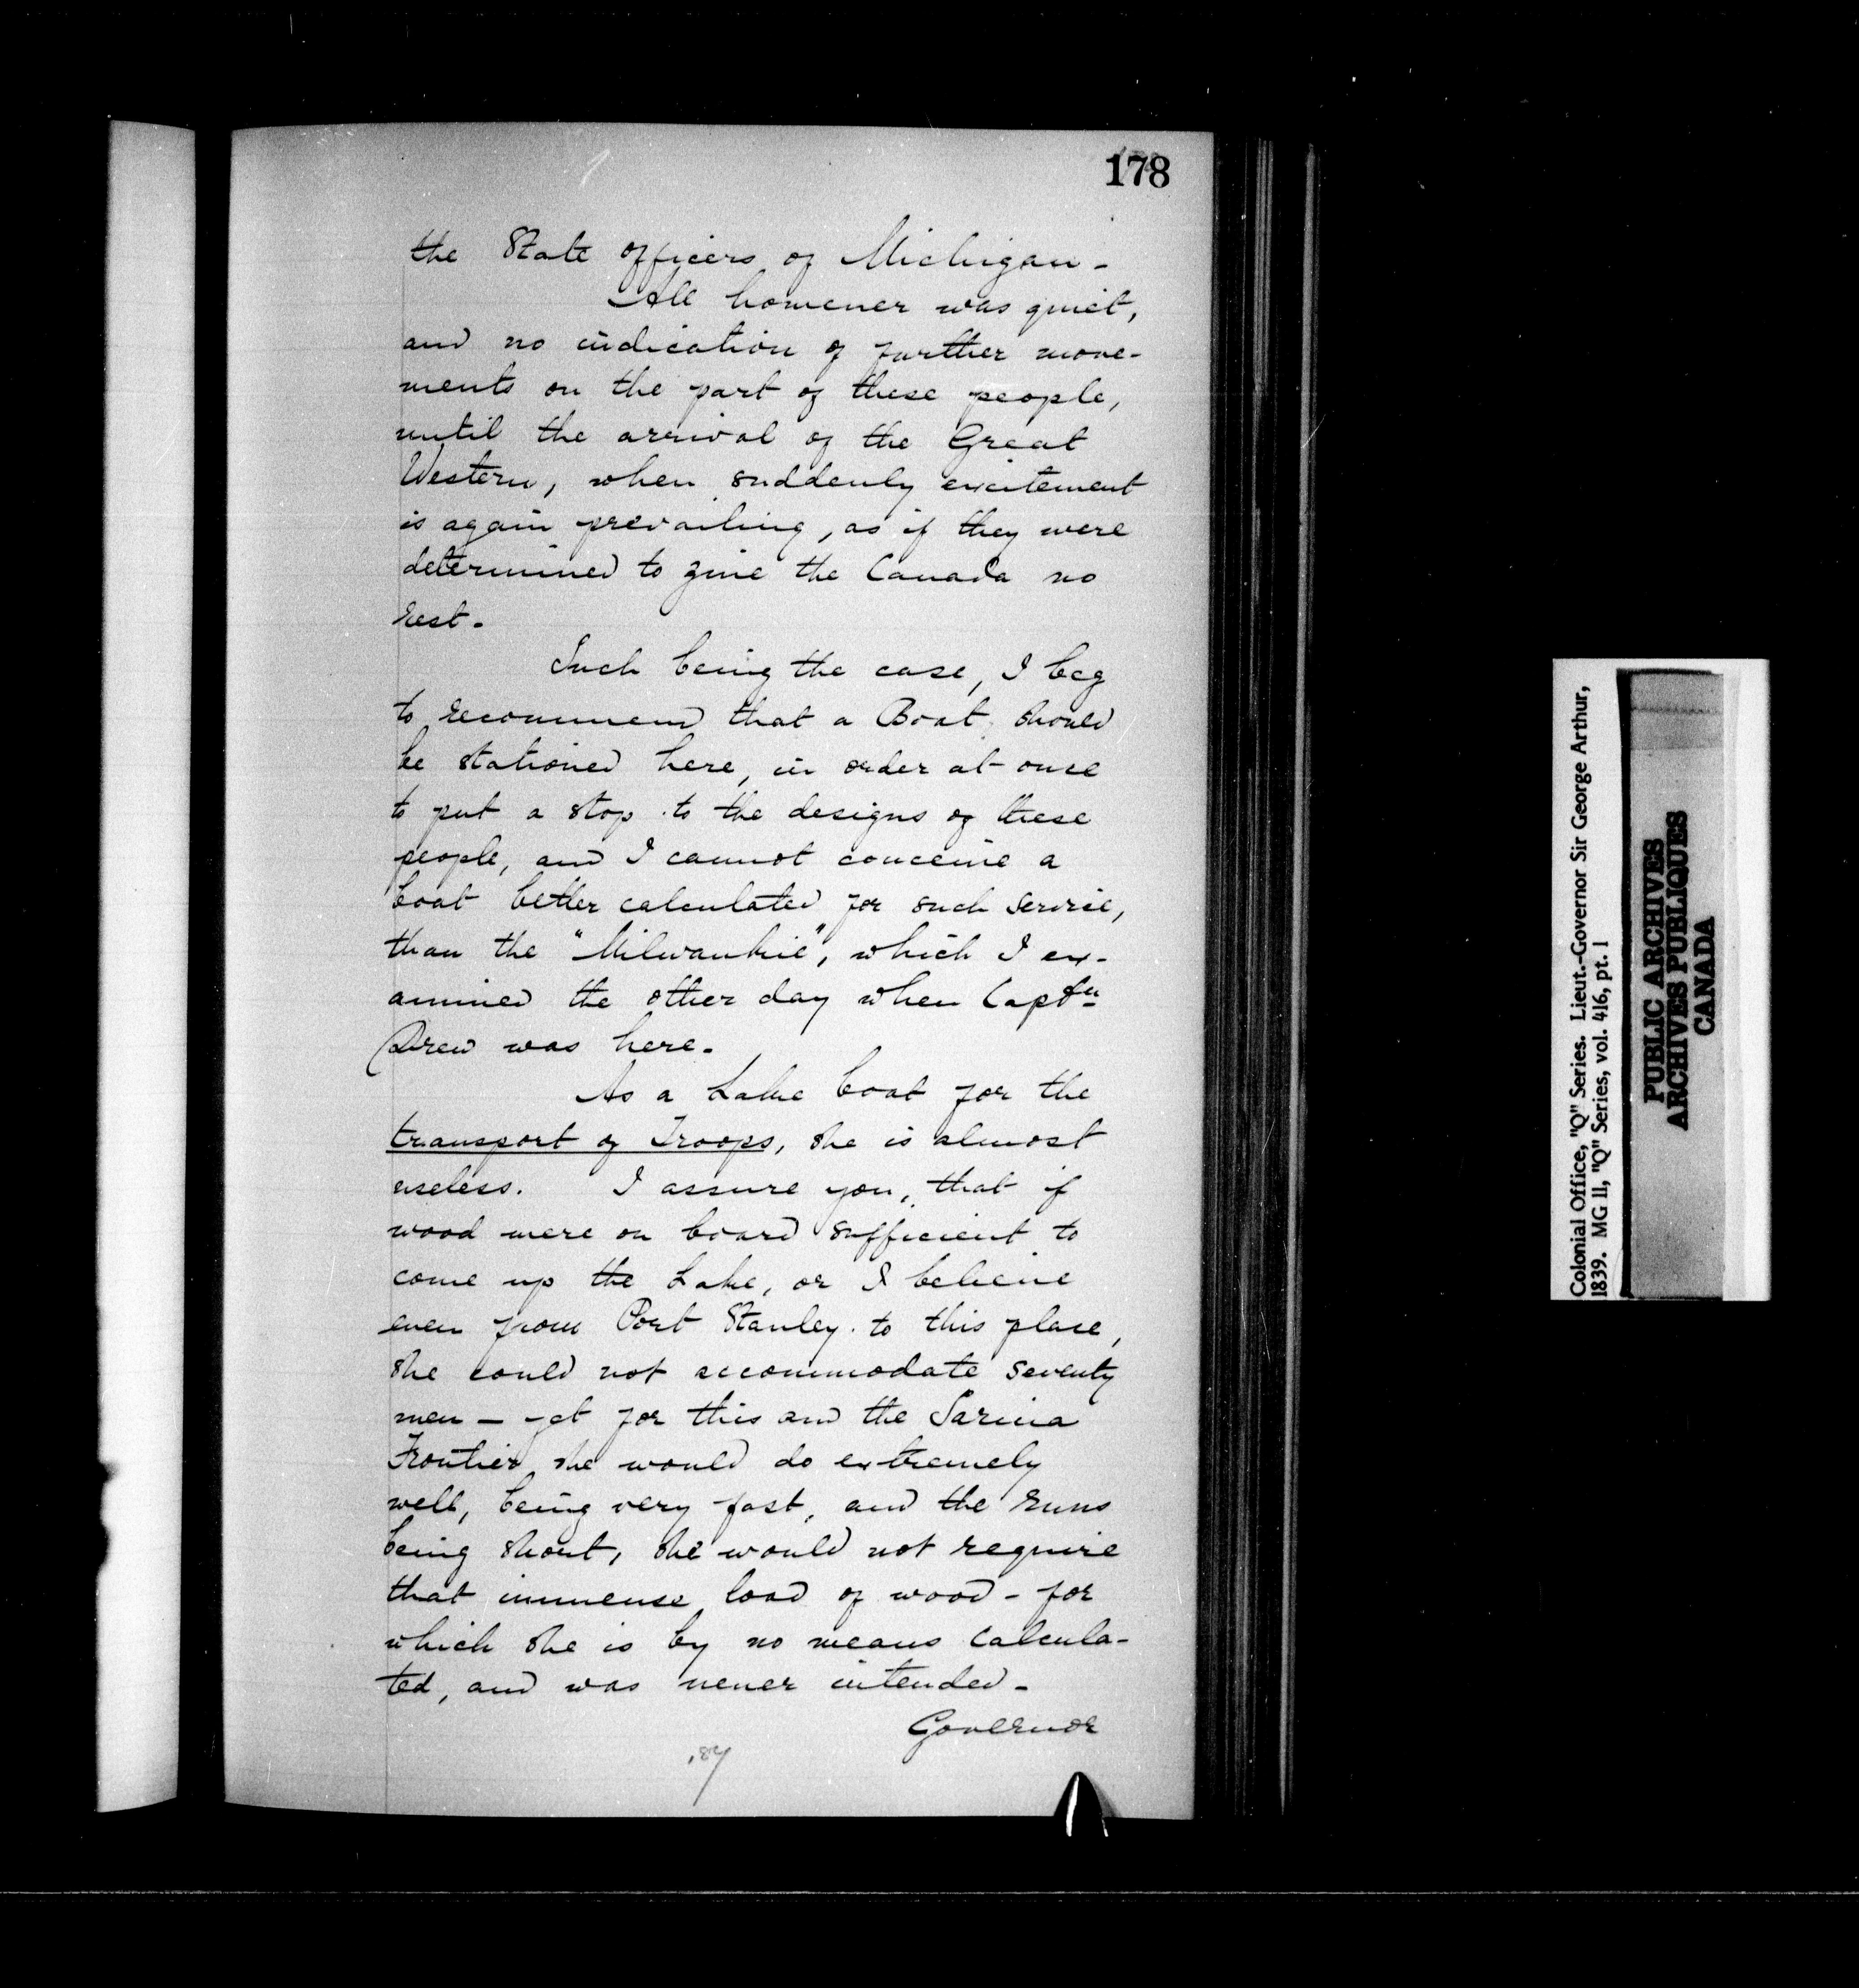 178
the State officers of Michigan -
All however was quiet,
and no indication of further move-
ments on the part of these people,
until the arrival of the Great
Western, when suddenly excitement
is again prevailing, as if they were
determined to give the Canada no
rest -
Such being the case, I beg
to recommend that a Boat should
be stationed here, in order at once
to put a stop to the designs of these
people, and I cannot conceive a
boat better calculated for such service,
than the "Milwaukie", which I ex-
amined the other day when Captn
Drew was here -
As a Lake boat for the
transport of Troops, she is almost
useless. I assure you, that if
wood were on board sufficient to
come up the Lake, or I believe
even from Port Stanley to this place,
she could not accommodate seventy
men - yet for this and the Sarnia
Frontier she would do extremely
well, being very fast, and the runs
being short, she would not require
that immense load of wood - for
which she is by no means calcula-
ted, and was never intended -
Governor
Colonial Office, "Q" Series. Lieut.-Governor Sir George Arthur,
1839. MG 11, "Q" Series, vol. 416, pt. 1
PUBLIC ARCHIVES
ARCHIVES PUBLIQUES
CANADA